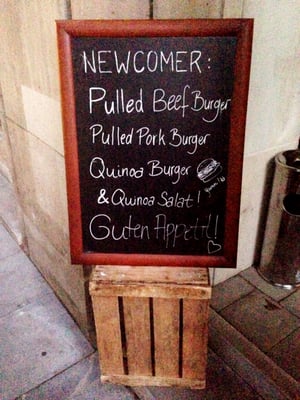 NEWCOMER:
Pulled Beef Burger
Pulled Pork Burger
Quinoa Burger
& Quinoa Salat!
Guten Appetit!